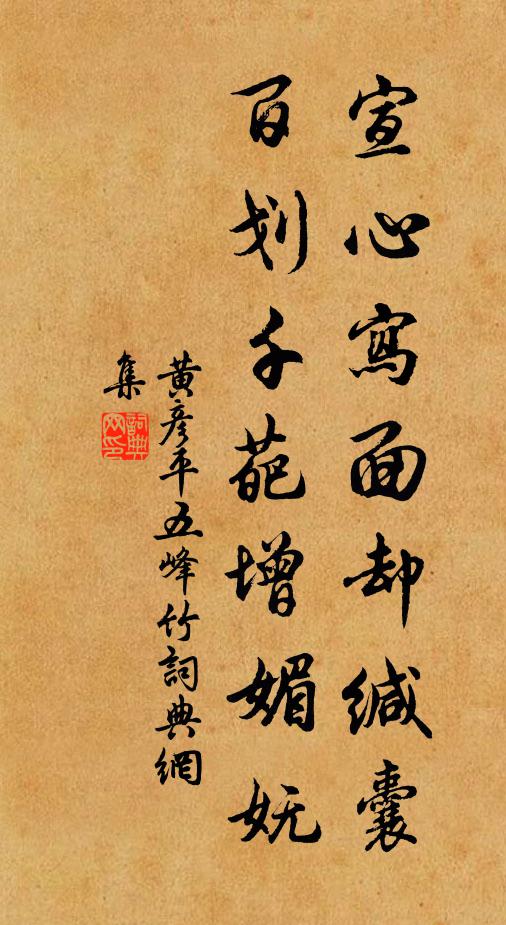 宣心寫面却緘囊
百划千葩增媚妩
黄彦平五峰竹詞典網
集
詞典网印